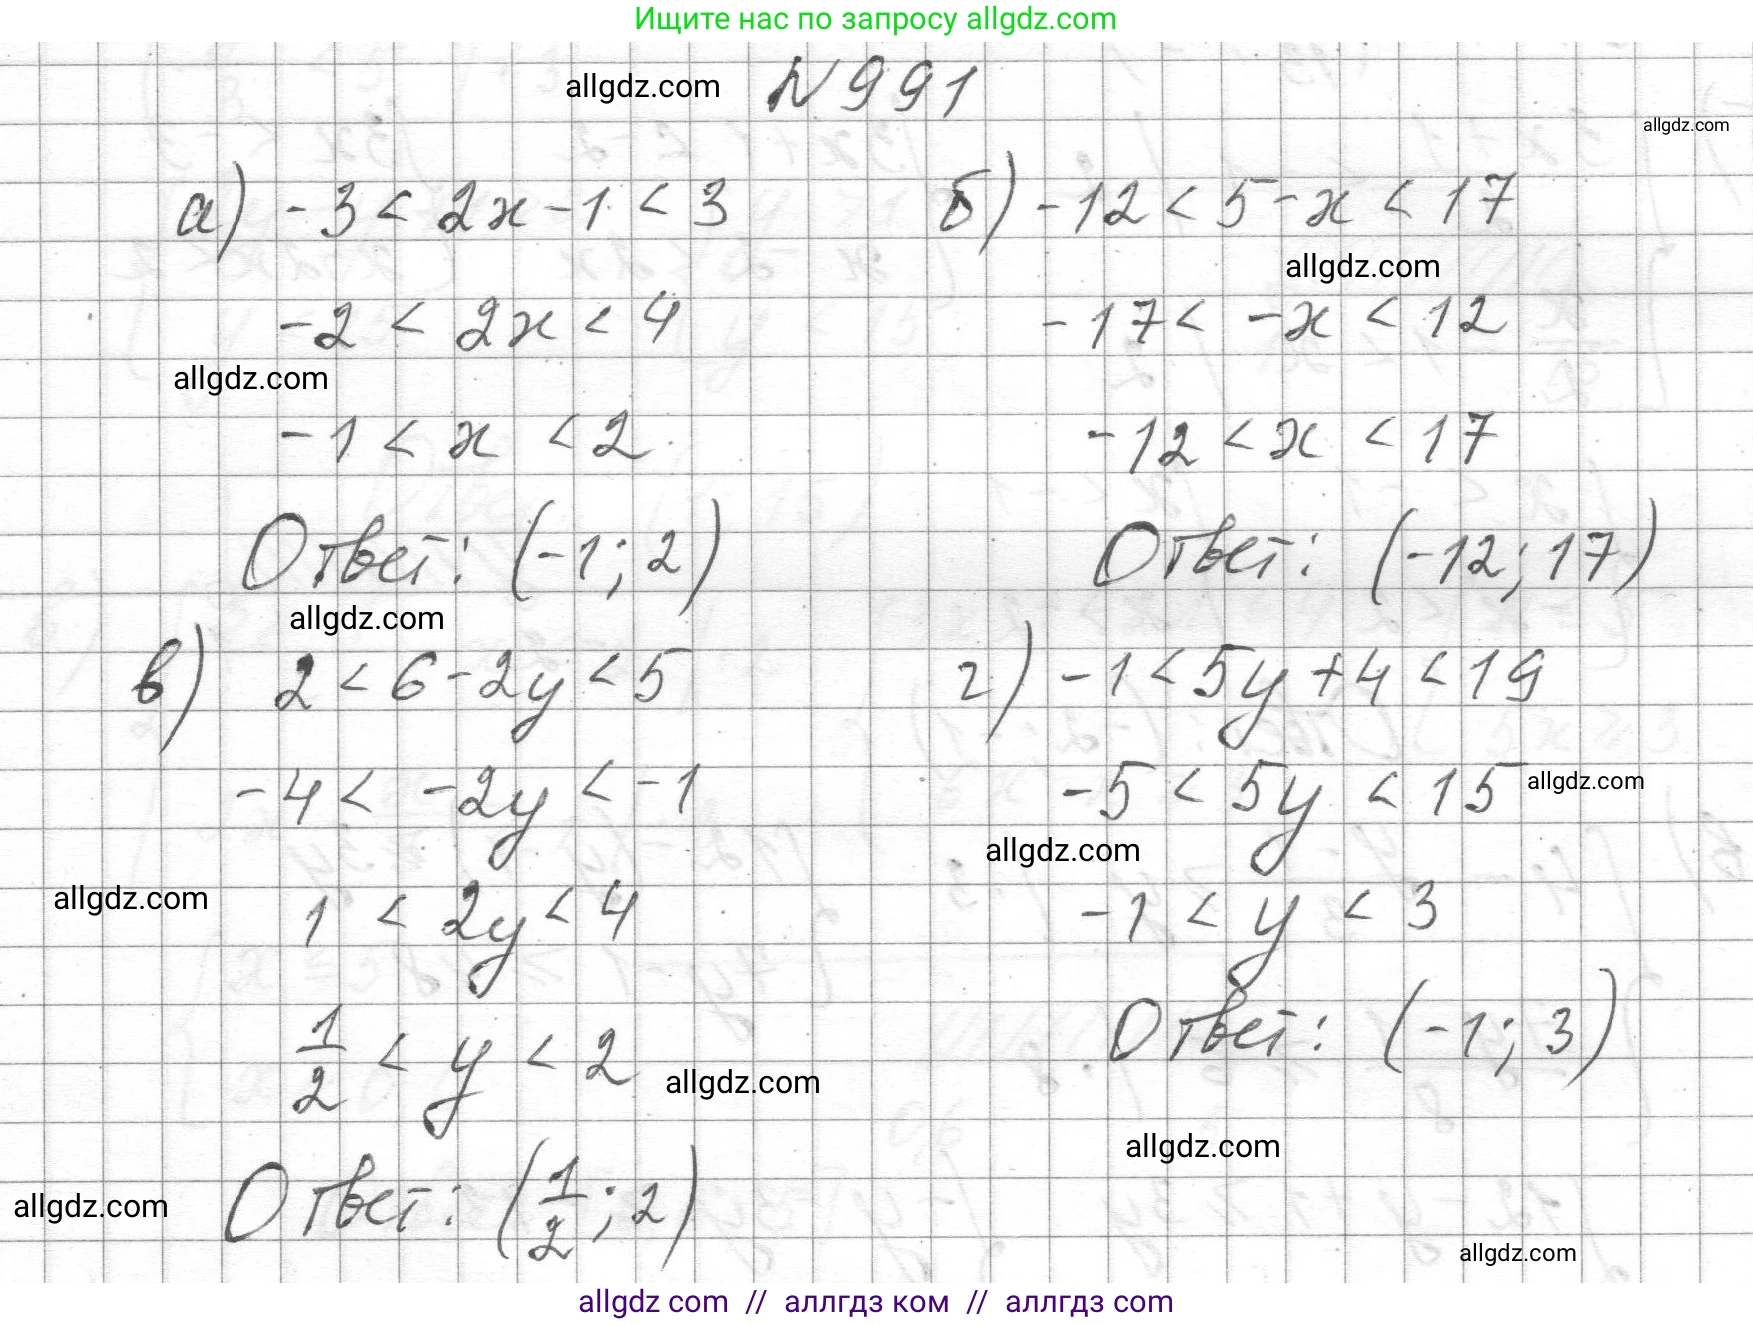 Ищите нас по запросу allgdz.com
allgdz.com
№ 991
allgdz.com
а) -3 < 2x - 1 < 3
-2 < 2x < 4
allgdz.com
-1 < x < 2
Ответ: (-1; 2)
allgdz.com
б) -12 < 5 - x < 17
allgdz.com
-17 < -x < 12
-12 < x < 17
Ответ: (-12; 17)
в) 2 < 6 - 2y < 5
-4 < -2y < -1
allgdz.com
1 < 2y < 4
1/2 < y < 2
allgdz.com
Ответ: (1/2; 2)
allgdz.com
г) -1 < 5y + 4 < 19
-5 < 5y < 15
allgdz.com
allgdz.com
-1 < y < 3
Ответ: (-1; 3)
allgdz.com
allgdz.com
allgdz com // аллгдз ком // аллгдз com